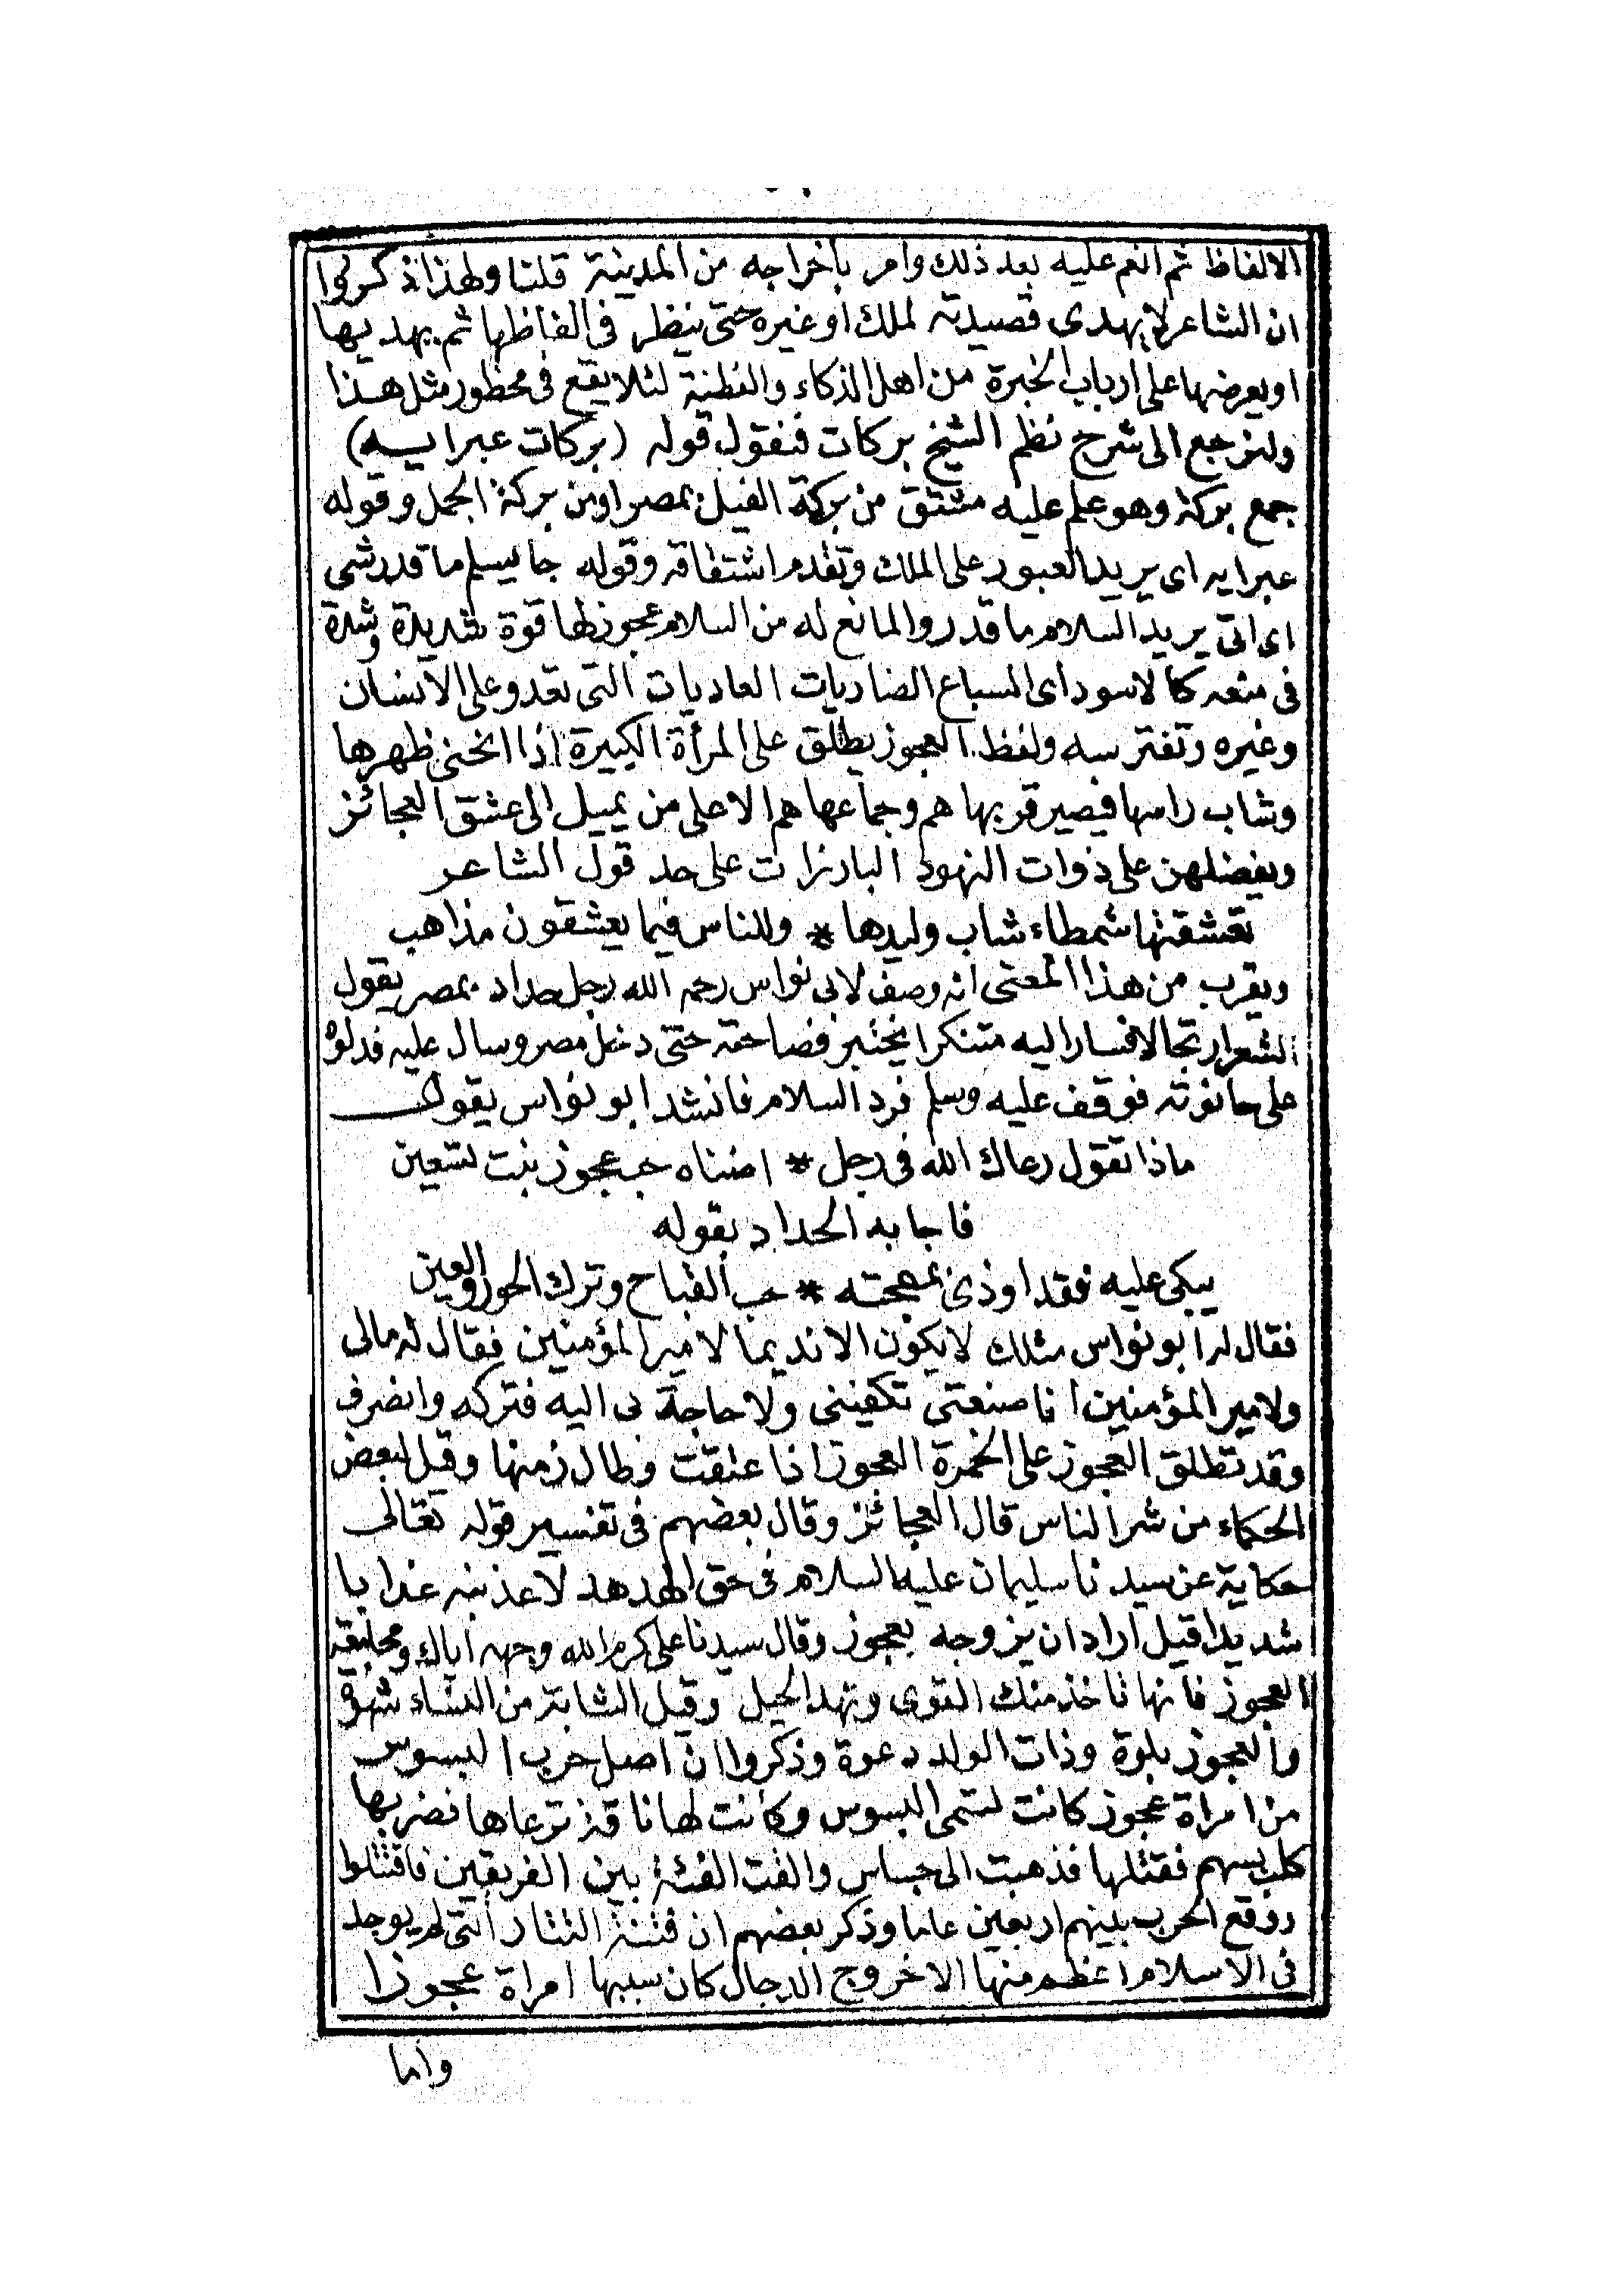 الالفاظ ثم انعم عليه بعد ذلك وامر باخراجه من المدينة قلنا ولهذا ذكروا
ان الشاعر لا يهدى قصيدته لملك او غيره حتى ينظر فى الفاظها ثم يهديها
او يعرضها على ارباب الخبرة من اهل الذكاء والفطنة لئلا يقع فى محظور مثل هذا
ولنرجع الى شرح نظم الشيخ بركات فنقول قوله (بركات عبرايه)
جمع بركة وهو علم عليه مشتق من بركة الفيل بمصر او من بركة الجمل وقوله
عبرايه اى يريد العبور على الملك وتقدم اشتقاقه وقوله جا يسلم ما قدرشى
اى اتى يريد السلام ما قدر والمانع له من السلام عجوز لها قوة شديدة وشدة
فى منعه كالاسود اى السباع الضاريات العاديات التى تعدو على الانسان
وغيره وتفترسه ولفظ العجوز يطلق على المرأة الكبيرة اذا انحنى ظهرها
وشاب راسها فيصير قربها هم وجماعها هم الا على من يميل الى عشق العجائز
ويفضلهن على ذوات النهود البارزات على حد قول الشاعر
تعشقتها شمطاء شاب وليدها * وللناس فيما يعشقون مذاهب
ويقرب من هذا المعنى انه وصف لابى نواس رحمه الله رجل حداد بمصر يقول
الشعر ارتجالا فسار اليه متنكرا يختبر فصاحته حتى دخل مصر وسال عليه فدلوه
على حانوته فوقف عليه وسلم فرد السلام فانشد ابو نواس يقول
ماذا تقول رعاك الله فى رجل * اضناه حب عجوز بنت تسعين
فاجابه الحداد بقوله
يبكى عليه فقد اوذى بمهجته * حب القباح وترك الحور والعين
فقال له ابو نواس مثلك لا يكون الا نديما لامير المؤمنين فقال له مالى
ولامير المؤمنين انا صنعتى تكفينى ولا حاجة بى اليه فتركه وانصرف
وقد تطلق العجوز على الخمرة العجوز اذا عتقت وطال زمنها وقيل لبعض
الحكماء من شر الناس قال العجائز وقال بعضهم فى تفسير قوله تعالى
حكاية عن سيدنا سليمان عليه السلام فى حق الهدهد لاعذبنه عذابا
شديدا قيل اراد ان يزوجه بعجوز وقال سيدنا على كرم الله وجهه اياك ومجامعة
العجوز فانها تاخذ منك القوى وتهد الحيل وقيل الشابة من النساء شهوة
والعجوز بلوة وذات الولد دعوة وذكروا ان اصل حرب البسوس
من امراة عجوز كانت تسمى البسوس وكانت لها ناقة ترعاها فضربها
كليب بسهم فقتلها فذهبت الى جساس والقت الفتنة بين الفريقين فاقتتلوا
ووقع الحرب بينهم اربعين عاما وذكر بعضهم ان فتنة التتار التى لم يوجد
فى الاسلام اعظم منها الا خروج الدجال كان سببها امراة عجوزا
واما